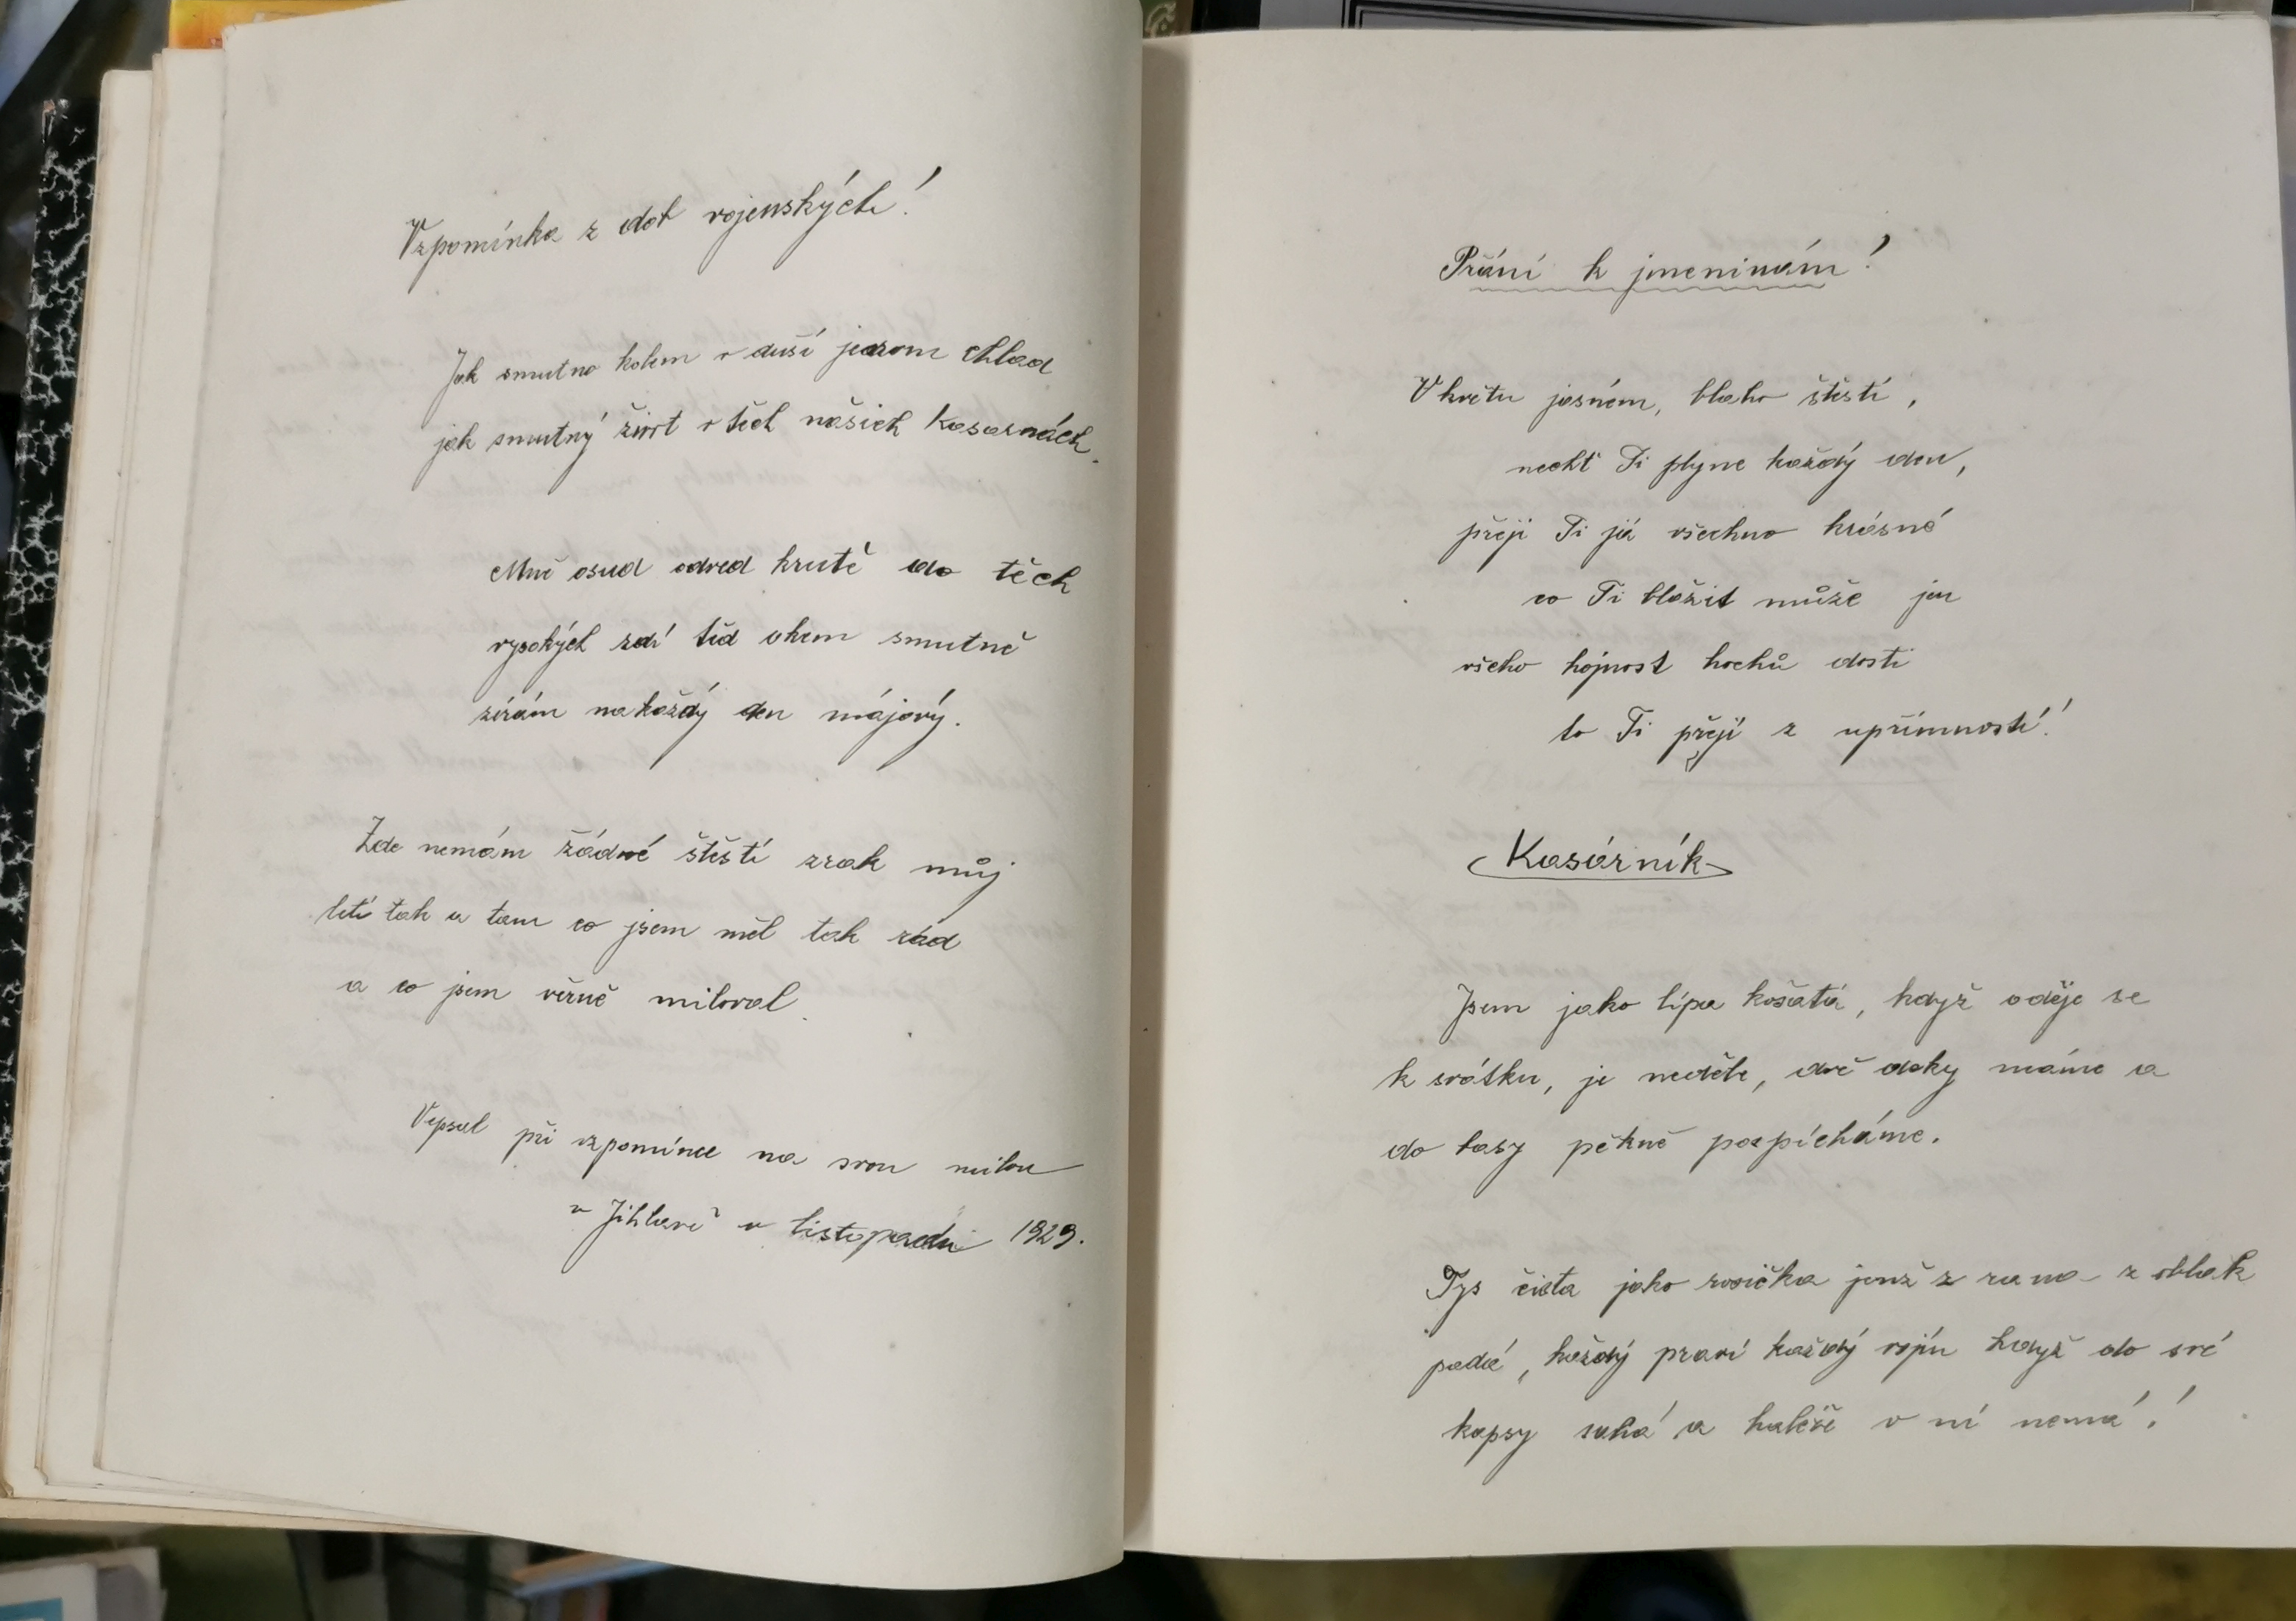 Vzpomínka z dob vojenských!
Jak smutno kolem v duši jenom chlad
jak smutný život v těch našich kasarnách.
Mně osud odved krutě do těch
vysokých zdí teď okem smutně
zírám na každý den májový.
Zde nemám žádné štěstí zrak můj
letí tak a tam co jsem měl tak rád
a co jsem věrně miloval.
Vepsal při vzpomínce na svou milou
v Jihlavě v listopadu 1929.
Přání k jmeninám!
V květu jasném, blaho štěstí,
nechť Ti plyne každý den,
přeji Ti já všechno krásné
co Ti blažit může jen
všeho hojnost hochů dosti
to Ti přeji z upřímností!
Kasárník
Jsem jako lípa košatá, když oděje se
k svátku, je neděle, dvě deky máme a
do basy pěkně pospícháme.
Tys čista jako rosička jenž z rana z oblak
padá, každý praví každý vojín když do své
kapsy sahá a haléře v ní nemá!